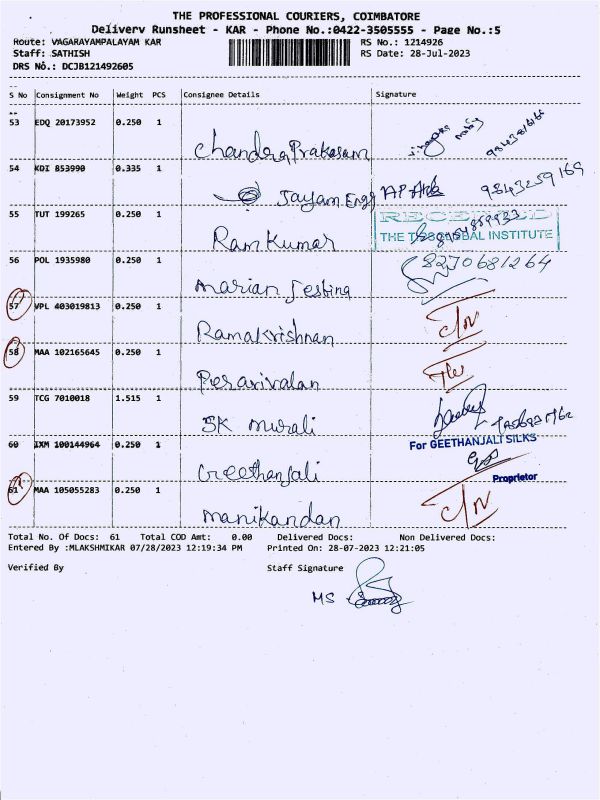 THE PROFESSIONAL COURIERS, COIMBATORE
Delivery Runsheet - KAR - Phone No.:0422-3505555 - Page No.:5
Route: VAGARAYAMPALAYAM KAR RS No.: 1214926
Staff: SATHISH RS Date: 28-Jul-2023
DRS No.: DCJB121492605
S No Consignment No Weight PCS Consignee Details Signature
53 EDQ 20173952 0.250 1
Chandra Prakasam
54 KDI 853990 0.335 1
Jayam Engg 9843259169
55 TUT 199265 0.250 1
RamKumar RECEIVED
THE INSTITUTE
56 POL 1935980 0.250 1 8270681264
Marian Jestina
57 VPL 403019813 0.250 1
Ramakrishnan
58 MAA 102165645 0.250 1
Perarivalan
59 TCG 7010018 1.515 1
SK Murali
60 IXM 100144964 0.250 1 For GEETHANJALI SILKS
Geethanjali
Proprietor
61 MAA 105055283 0.250 1
Manikandan
Total No. Of Docs: 61 Total COD Amt: 0.00 Delivered Docs: Non Delivered Docs:
Entered By :MLAKSHMIKAR 07/28/2023 12:19:34 PM Printed On: 28-07-2023 12:21:05
Verified By Staff Signature
MS